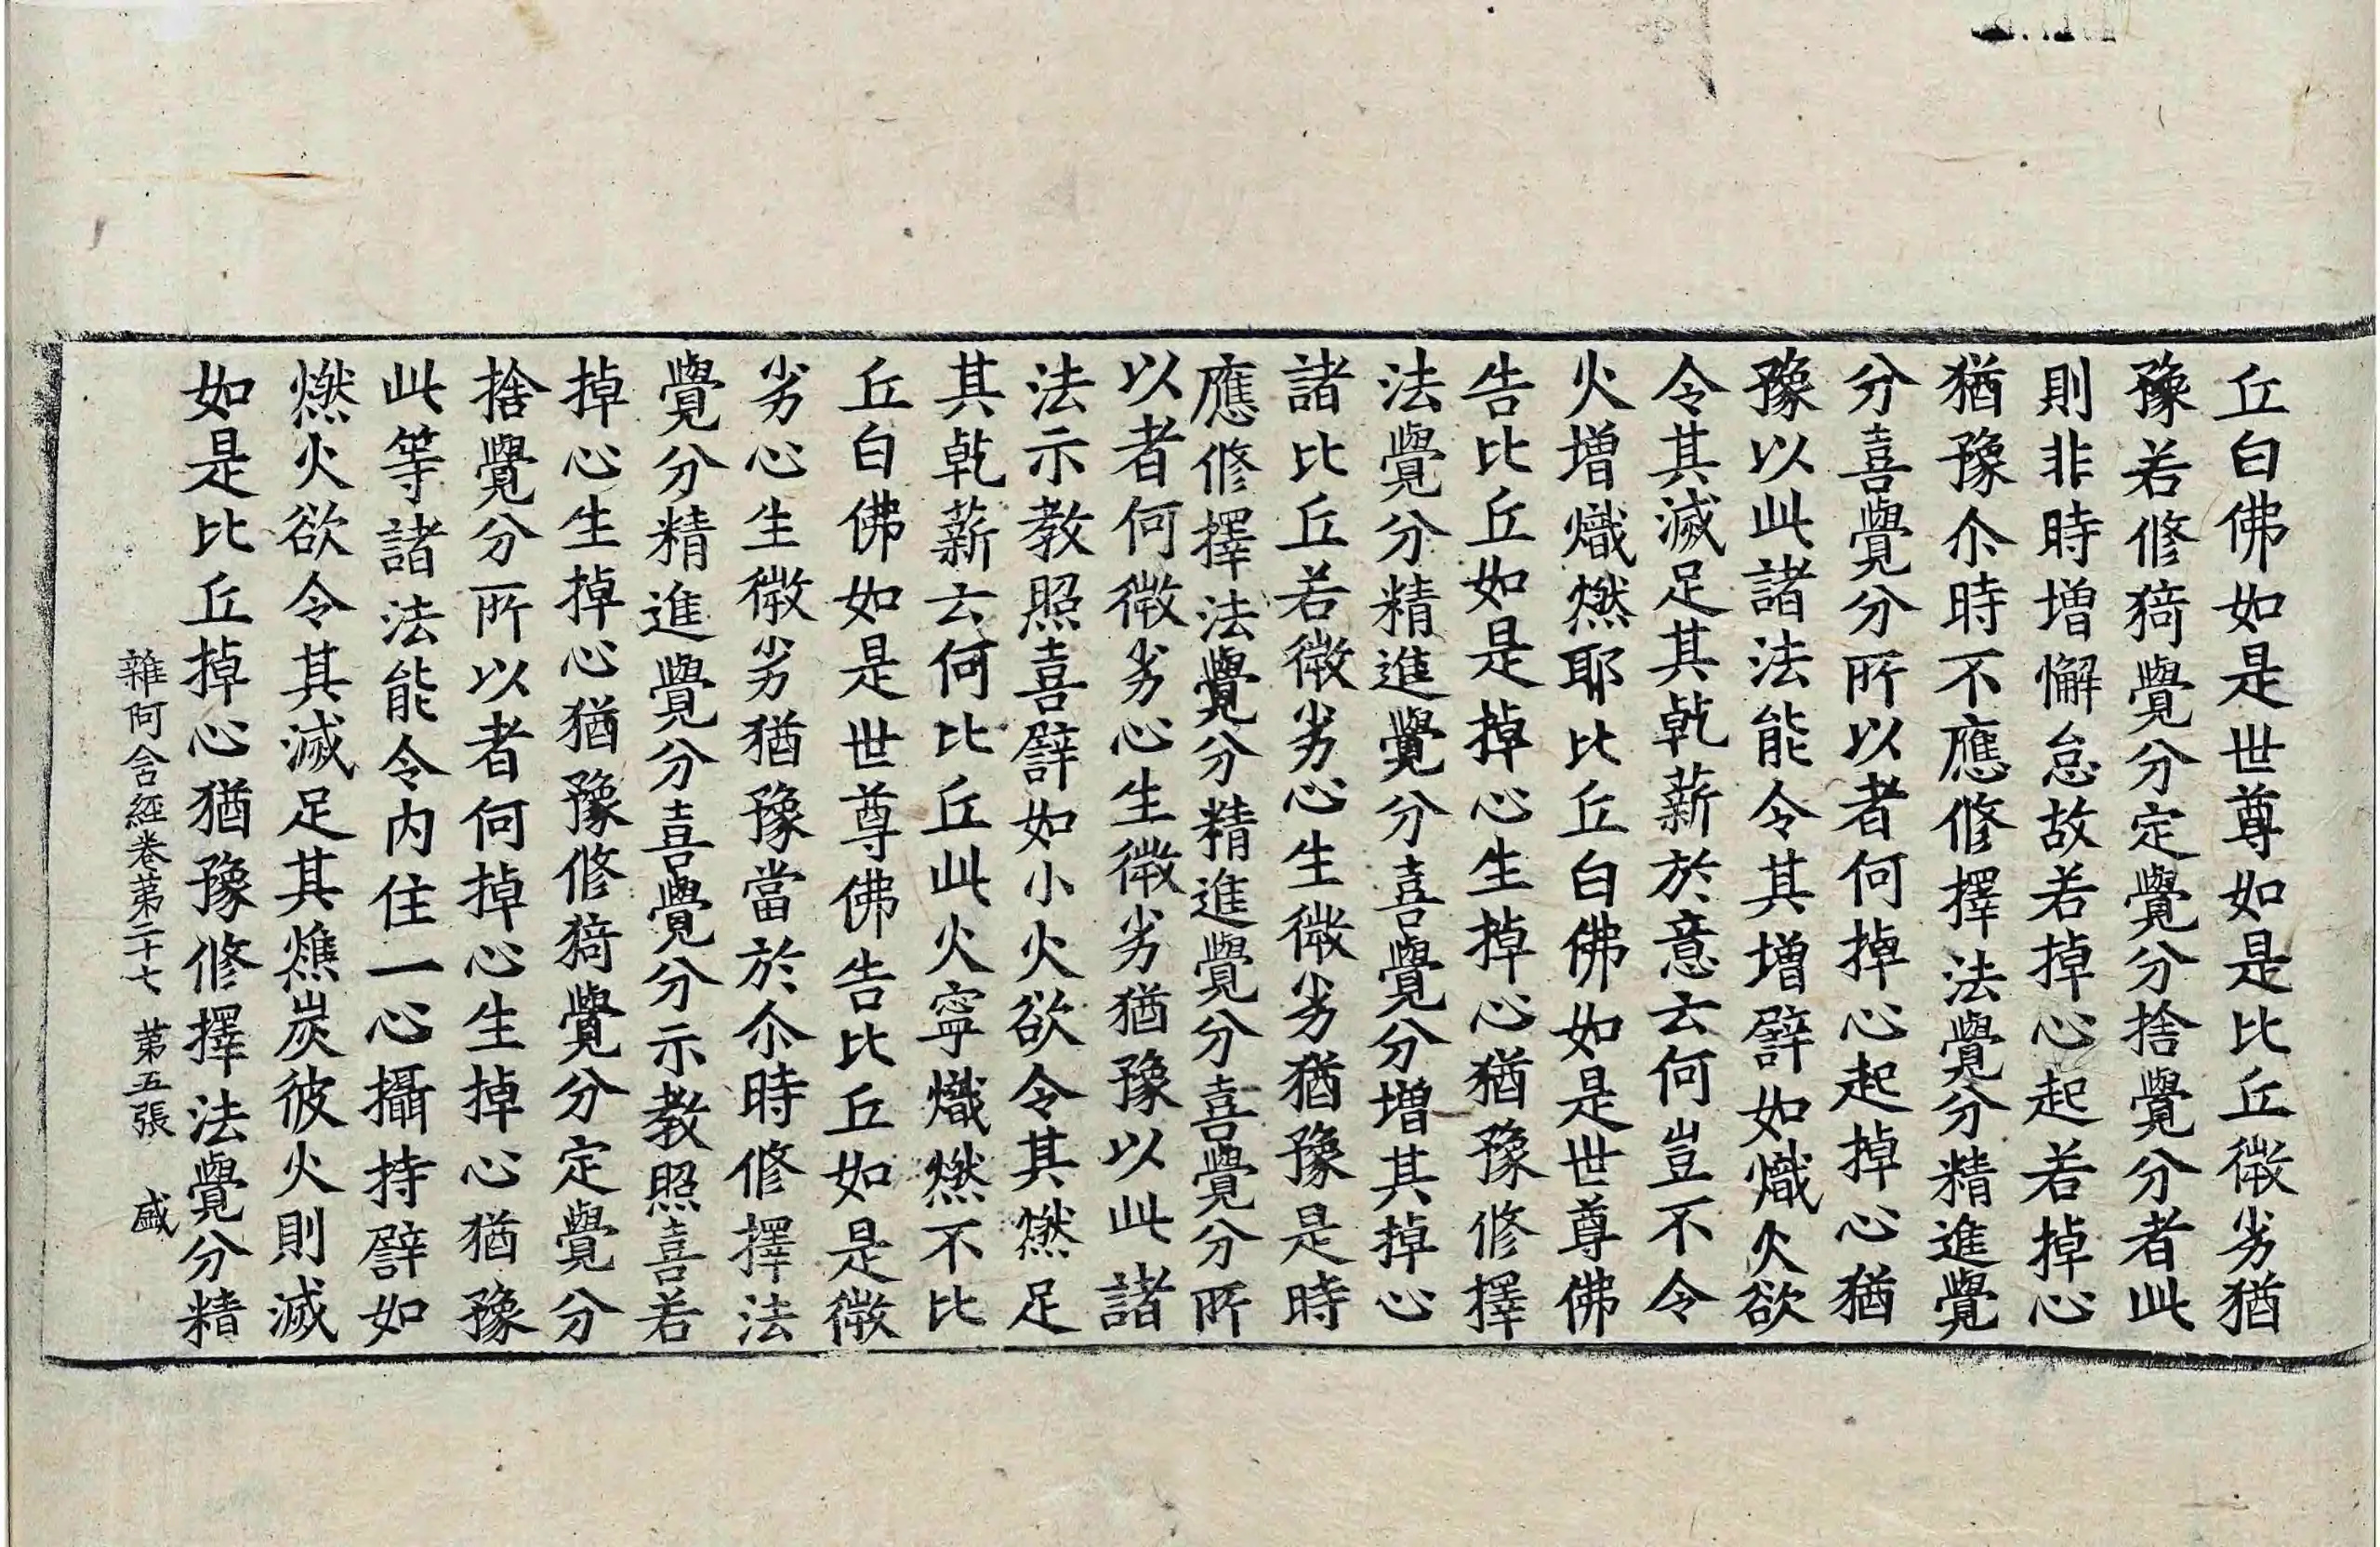 丘白佛如是世尊如是比丘微劣猶
豫若修猗覺分定覺分捨覺分者此
則非時增懈怠故若掉心起若掉心
猶豫尒時不應修擇法覺分精進覺
分喜覺分所以者何掉心起掉心猶
豫以此諸法能令其增譬如熾火欲
令其滅足其乾薪於意云何豈不令
火增熾燃耶比丘白佛如是世尊佛
告比丘如是掉心生掉心猶豫修擇
法覺分精進覺分喜覺分增其掉心
諸比丘若微劣心生微劣猶豫是時
應修擇法覺分精進覺分喜覺分所
以者何微劣心生微劣猶豫以此諸
法示教照喜譬如小火欲令其燃足
其乾薪云何比丘此火寧熾燃不比
丘白佛如是世尊佛告比丘如是微
劣心生微劣猶豫當於尒時修擇法
覺分精進覺分喜覺分示教照喜若
掉心生掉心猶豫修猗覺分定覺分
捨覺分所以者何掉心生掉心猶豫
此等諸法能令內住一心攝持譬如
燃火欲令其滅足其燋炭彼火則滅
如是比丘掉心猶豫修擇法覺分精
雜阿含經卷第二十七 第五張 盛